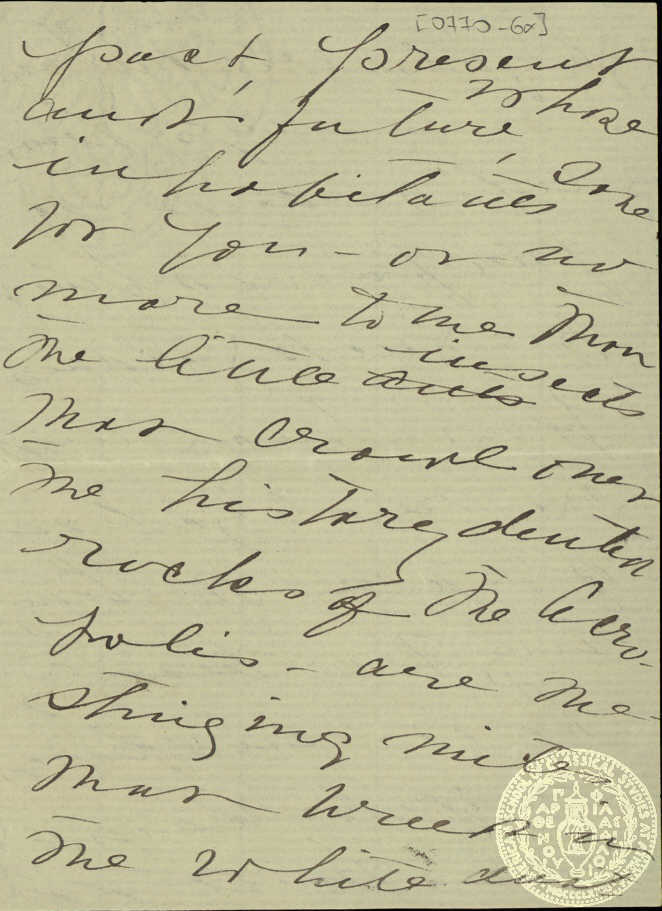 [0770-6α]
past, present
and future, whose
inhabitants, save
for you – or no
more to me than
the little ants insects
that crawl over
the history dented
rocks of the Acro-
polis – are the
stinging mites
that
the white dust